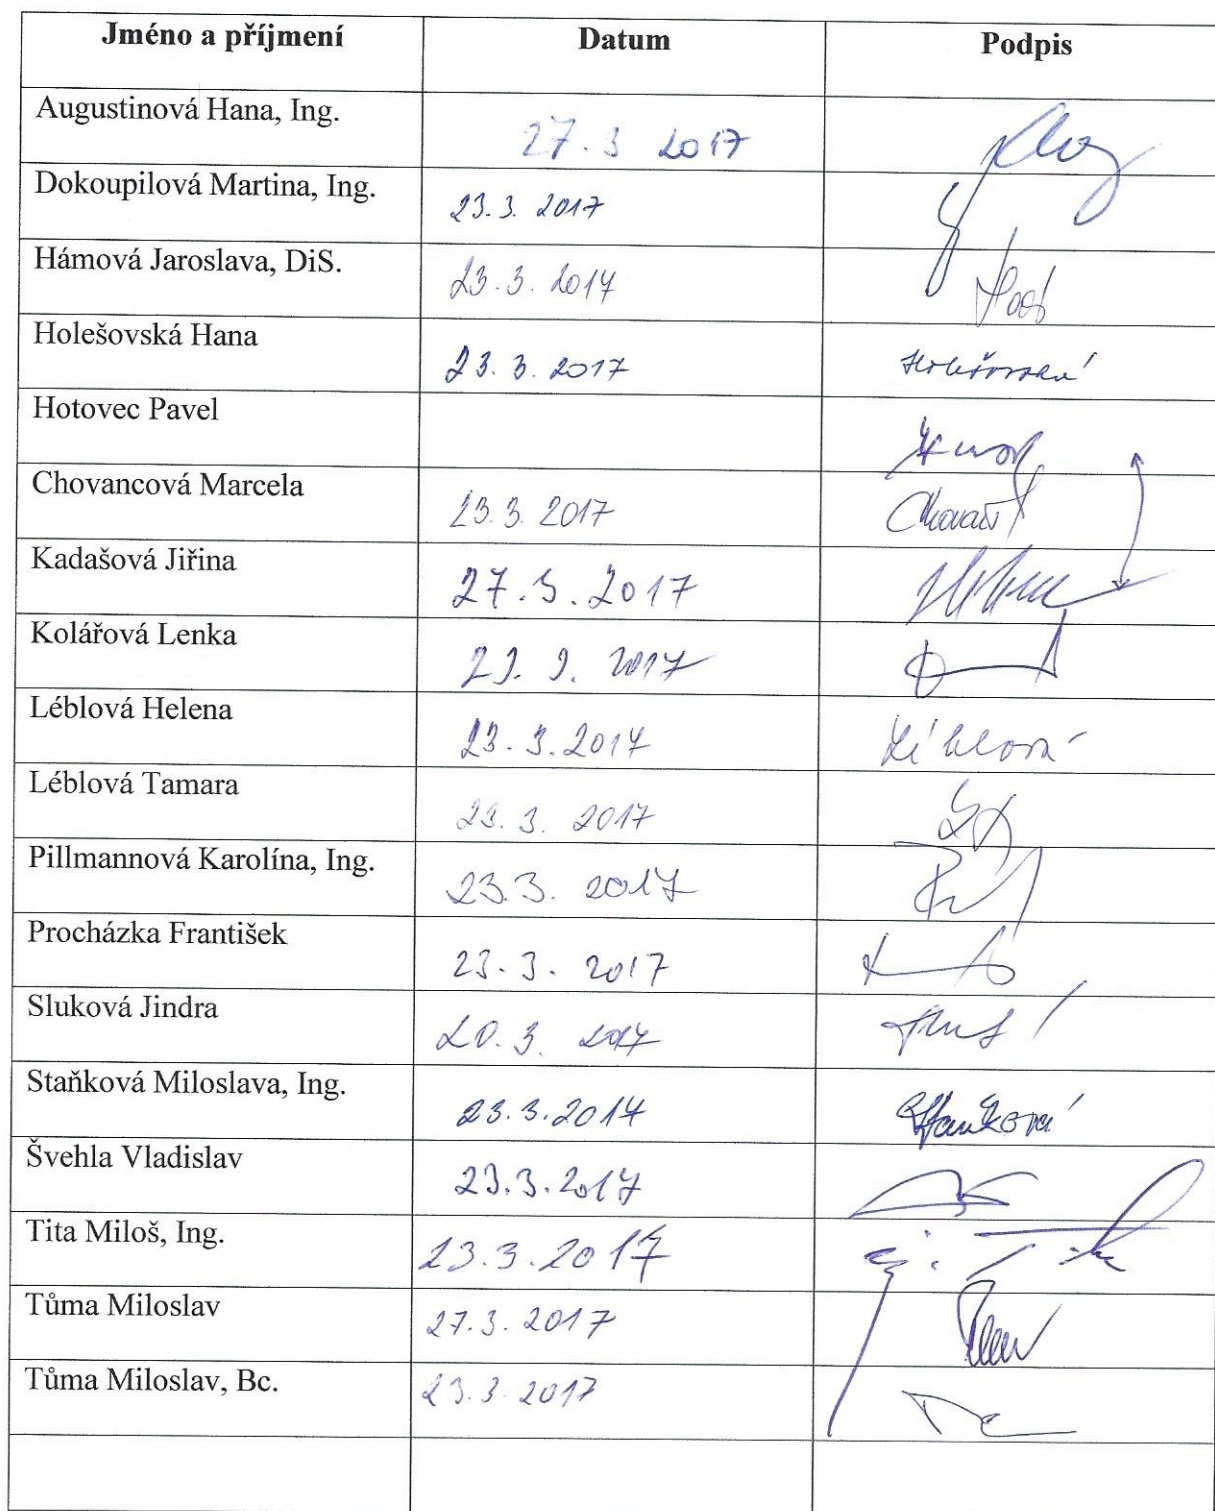 Jméno a příjmení Datum Podpis
Augustinová Hana, Ing. 27. 3 2017
Dokoupilová Martina, Ing. 23. 3. 2017
Hámová Jaroslava, DiS. 23. 3. 2017
Holešovská Hana 23. 3. 2017 Holešovská
Hotovec Pavel
Chovancová Marcela 23. 3. 2017
Kadašová Jiřina 27. 3. 2017
Kolářová Lenka 2017
Léblová Helena 23. 3. 2017 Léblová
Léblová Tamara 23. 3. 2017
Pillmannová Karolína, Ing. 23.3. 2017
Procházka František 23. 3. 2017
Sluková Jindra 20. 3. 2017
Staňková Miloslava, Ing. 23. 3. 2017 Staňková
Švehla Vladislav 23. 3. 2017
Tita Miloš, Ing. 23. 3. 2017
Tůma Miloslav 27. 3. 2017
Tůma Miloslav, Bc. 23. 3. 2017